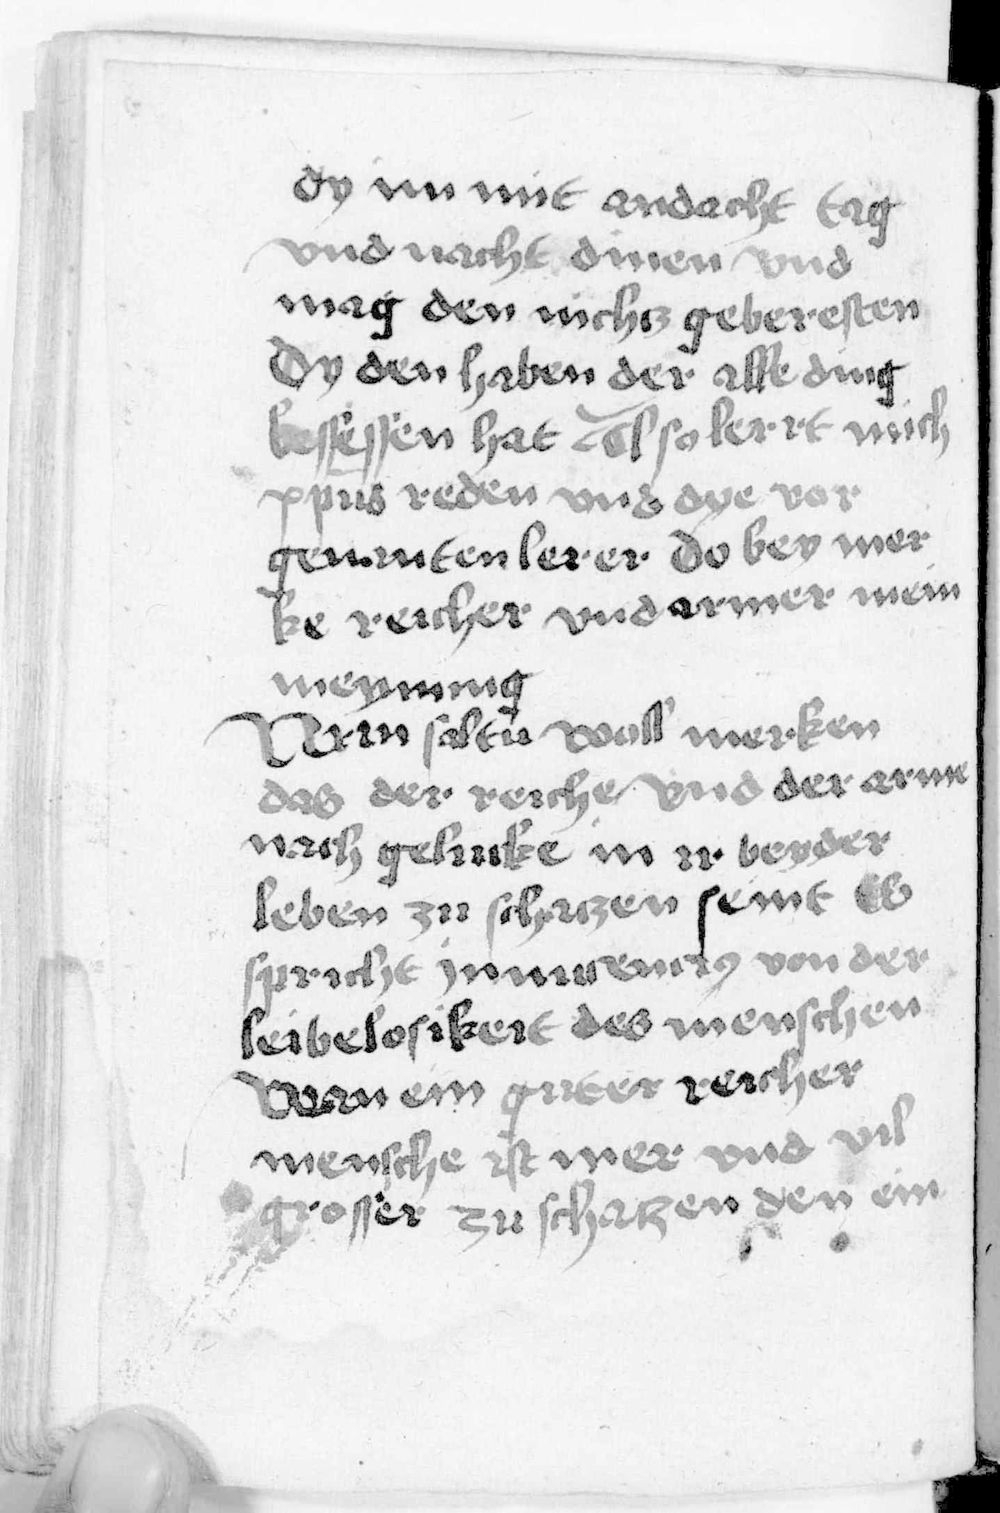 dy im mit andacht tag
vnd nacht dinen vnd
mag den nichcz geberesten
Dy den haben der alle ding
bessessen hat Also lerrt mich
xpus reden vnd dye vor
genanten lerer Do bey mer
ke reicher vnd armer mein
meynung
Nu saltu woll merken
das der reiche vnd der arme
nach gelucke in ir beyder
leben zu schaczen seint Es
spricht jnnocencius von der
leibelosikeit des menschen
Wenn ein guter reicher
mensche ist mer vnd vil
grosser zu schaczen den ein